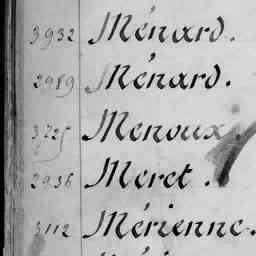 3932 Ménard.
2989 Ménard.
3725 Menoux.
2936 Meret.
3112 Mérienne.